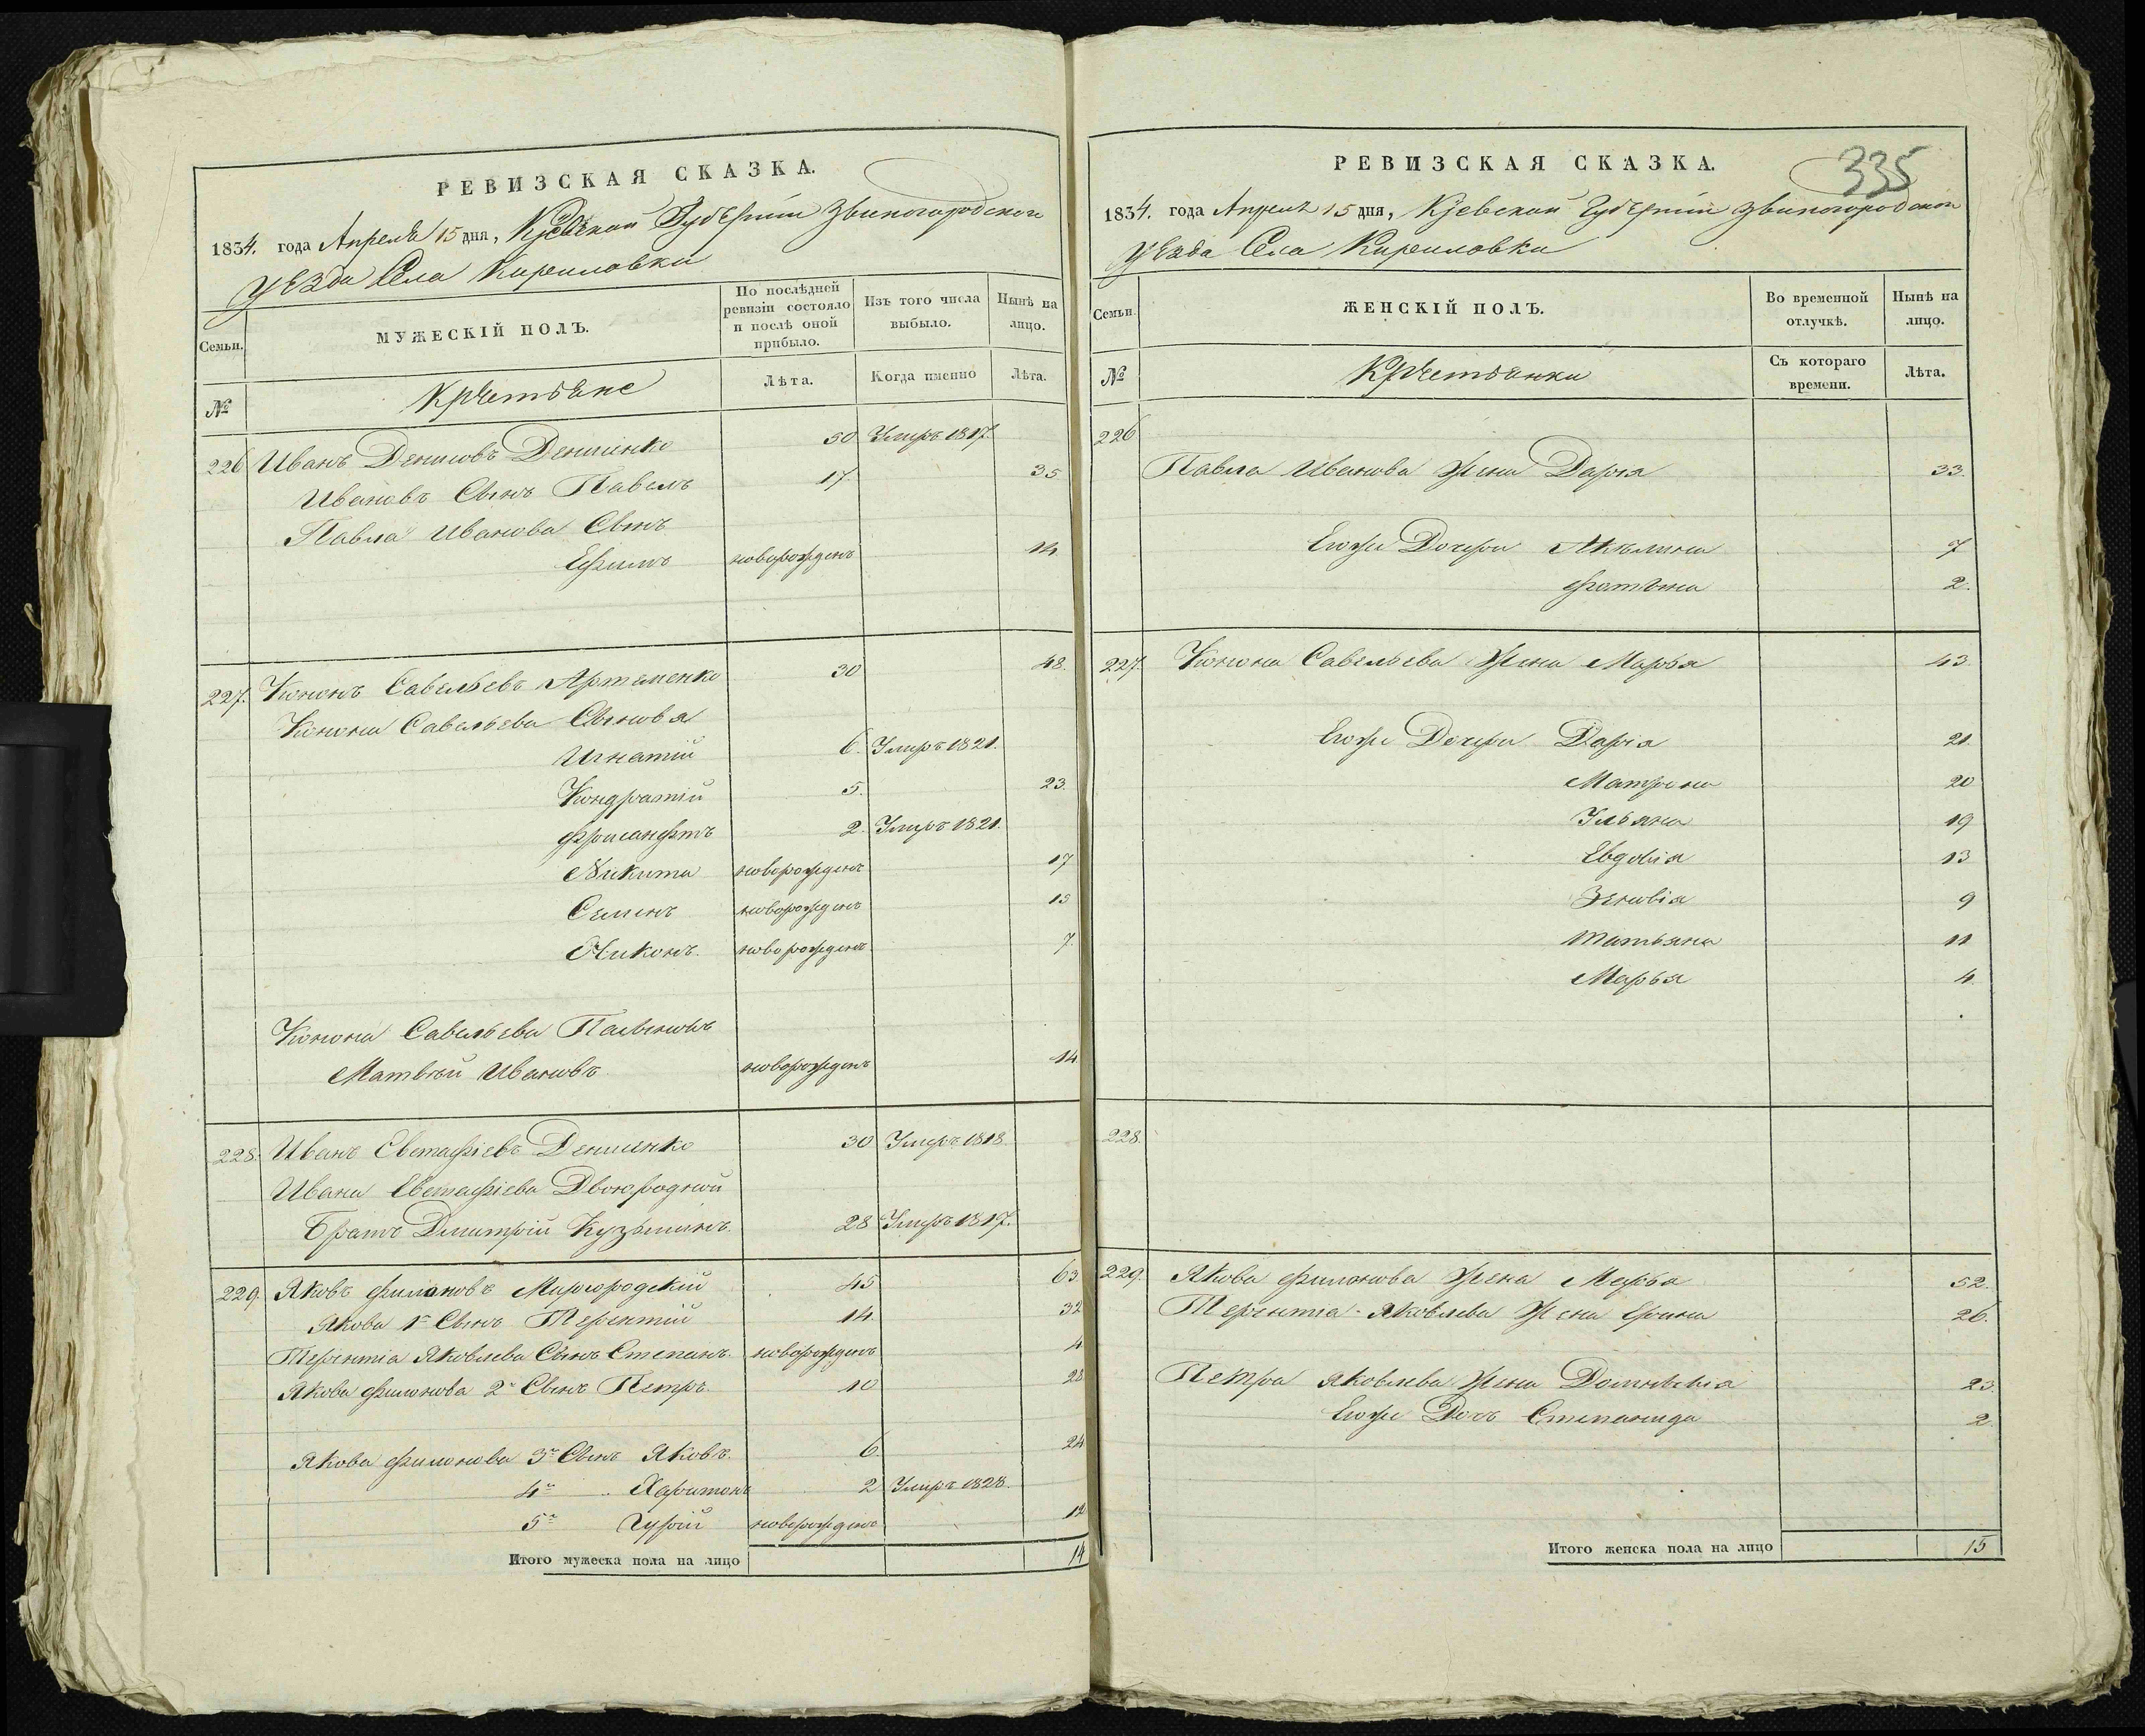 РЕВИЗСКАЯ СКАЗКА.
1834. года Апреля 15 дня, Кіевской Губерніи Звиногородского
уезда Села Кириловки
Семьи.
МУЖЕСКІЙ ПОЛЪ.
По послѣдней ревизіи состояло и послѣ оной прибыло.
Изъ того числа выбыло.
Нынѣ на лицо.
№
Крестьяне
Лѣта.
Когда именно
Лѣта.
226 Иванъ Денисовъ Денисенко 50 Умеръ 1817.
Ивановъ Сынъ Павелъ 17. 35
Павла Иванова Сынъ
Ефимъ новорожденъ 14
227. Кононъ Савельевъ Артеменко 30 48.
Конона Савельева Сыновья
Игнатій 6. Умеръ 1821.
Кондратій 5. 23.
2. Умеръ 1821.
Никита новорожденъ 17
Семенъ новорожденъ 13
Никонъ. новорожденъ 7.
Конона Савельева Пасынокъ
Матвей Ивановъ новорожденъ 14
228. Иванъ Евстафіевъ Денисенко 30 Умеръ 1818.
Ивана Евстафіева Двоюродной
Братъ Дмитрій Кузьминъ. 28 Умеръ 1817.
229. Яковъ Филоновъ Миргородскій 45 63
Якова 1й Сынъ Терентій 14. 32
Терентія Яковлева Сынъ Степанъ. новорожденъ 4
Якова Филонова 2й Сынъ Петръ. 10 28
Якова Филонова 3й Сынъ Яковъ. 6. 24
4й " Харитонъ 2 Умеръ 1828.
5й Гурій новорожденъ 12
Итого мужеска пола на лицо 14
РЕВИЗСКАЯ СКАЗКА.
335
1834. года Апреля 15 дня, Кіевской Губерніи Звиногородского
уезда Села Кириловки
Семьи.
ЖЕНСКІЙ ПОЛЪ.
Во временной отлучкѣ.
Нынѣ на лицо.
№
Крестьянки
Съ котораго времени.
Лѣта.
226
Павла Иванова Жена Дарія 33.
Егоже Дочери Акилина 7
2.
227. Конона Савельева Жена Марья 43
Егоже Дочери Дарія 21.
Матрона 20
Ульяна 19
13
Зеновія 9
Татьяна 11
Марья 4.
228.
229. Якова Филонова Жена Марья 52.
Терентія Яковлева Жена Ирина 26.
Петра Яковлева Жена 23.
Егоже Дочь Степанида 2
Итого женска пола на лицо 15